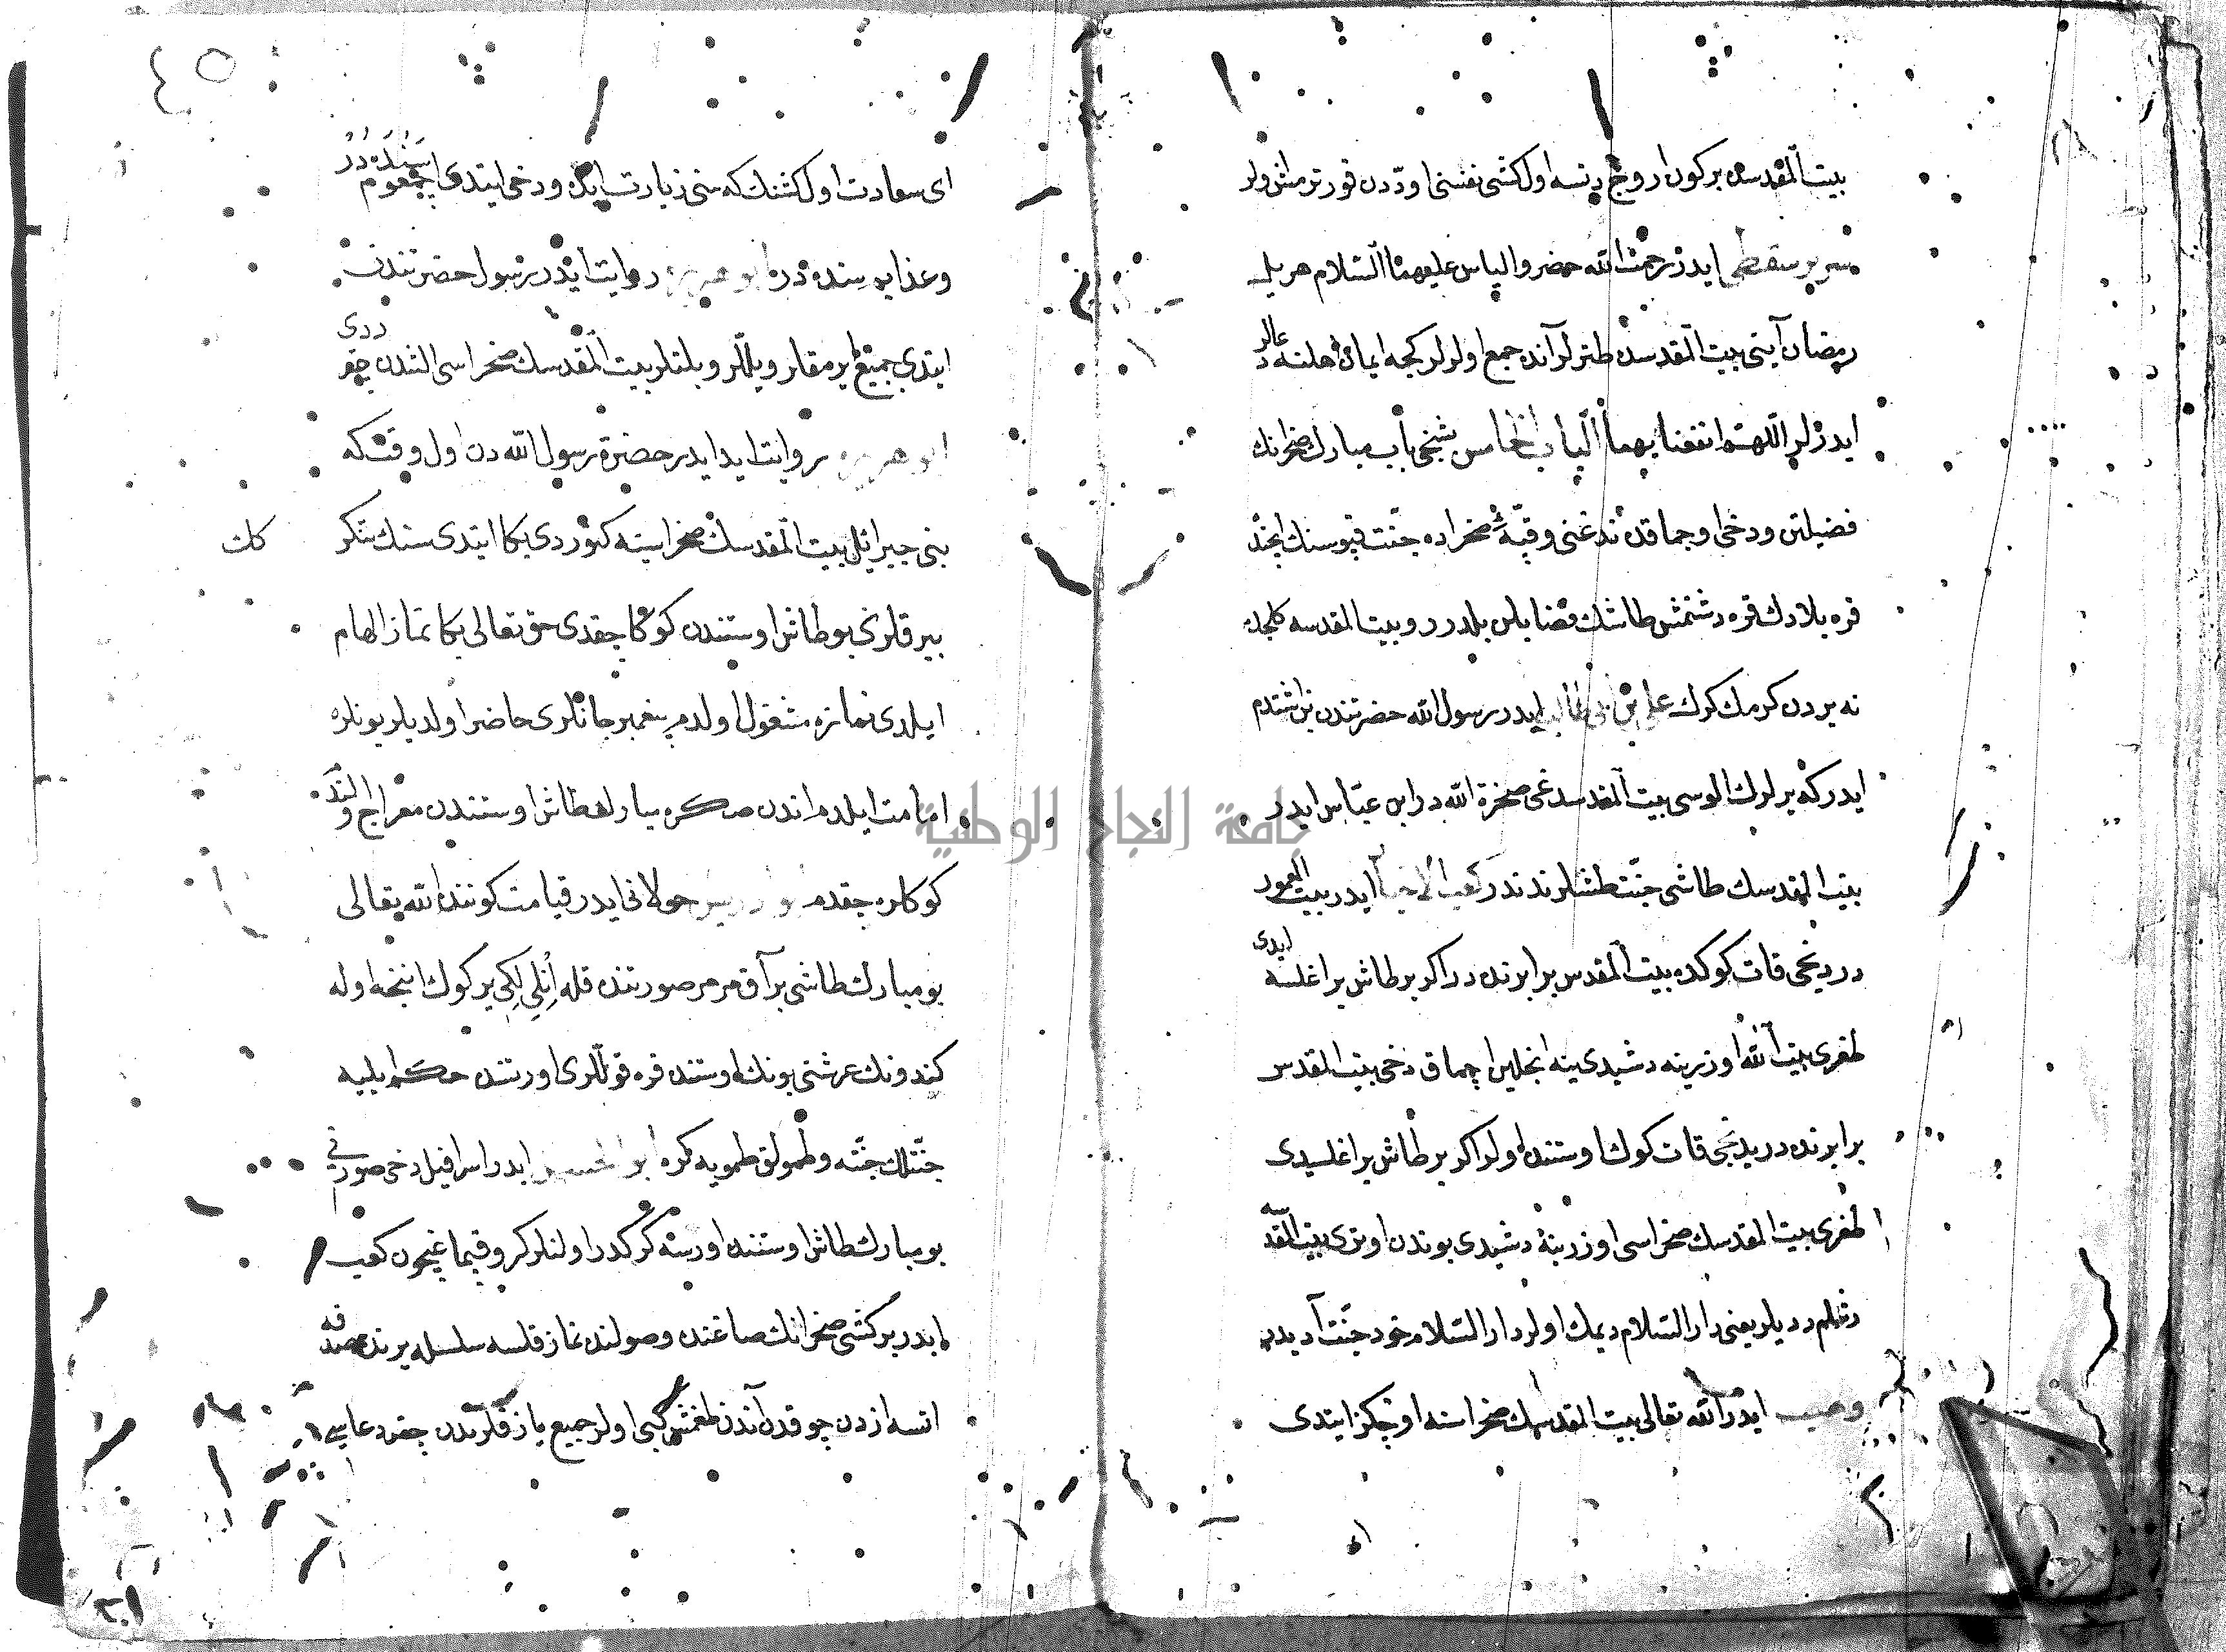 بيت المقدسده بر كون اروج دتسه اول كشى نفسنى اوددن قورترمش اولر
ايدر رحمة الله حضر والياس عليهما السلام هر يل
رمضان آينى بيت المقدسده طترلر آنده جمع اولرلر كجه ايمان اهلنه دعالر
ايدرلر اللهم انفعنا بهما الباب الخامس بشنجى باب مبارك صخرانك
فضيلتن ودخى اوجماقدن ندغنى وقبۀ صخراده جنت قپوسنك
قره دشنمش طاشك بلدرر وبيت المقدسه كلجك
نه يردن كرمك كرك على بن ابى طالب ايدر رسول الله حضرتندن بن اشتدم
ايدر كه يرلرك الوسى بيت المقدسدغى صخرة الله در ابن عباس ايدر
بيت المقدسك طاشى جنت طشلرندندر كعب الاحبار ايدر بيت المعمور
دردنجى قات كوكده بيت المقدس برابرنده در اكر بر طاش براغلسه ايدى
طغرى بيت الله اوزرينه دشيدى ينه انجلين اچماق دخى بيت المقدس
برابرنده در يدنجى قات كوك اوستنده اولر اكر بر طاش براغلسيدى
طغرى بيت المقدسك صخراسى اوزرينه دشيدى بوندن اوترى بيت المقدسه
دديلر يعنى دار السلام ديمك اولر دار السلام خود جنت آديدر
وهب ايدر الله تعالى بيت المقدسك صخراسنه اوچكز ايتدى
٤٥
اى سعادت اول كشنك كه سنى زيارت ايده ودخى ايتدى سنده در
وعذابم سنده در ابو هريره روايت ايدر رسول حضرتندن
ايتدى جميع ايرمقلر ويللر وبلتلر بيت المقدسك صخراسى التندن چقر ددى
ابو هريره روايت ايدر حضرة رسول الله دن اول وقت كه
بنى جبرائيل بيت المقدسك صخراسينه كتوردى بكا ايتدى سنك تنكر
كلك
بير قلرغى بو طاش اوستندن كوكا چقدى حق تعالى بكا نماز الهام
ايلدى نمازه مشغول اولدم پيغمبر جانلرى حاضر اولديلر بونلره
امامت ايلدم اندن صكره مبارك طاش اوستندن معراج
كوكلره چقدم ابو ادريس خولانى ايدر قيامت كوننده الله تعالى
بو مبارك طاشى بر آق مرمر صورتنده قله كوك انجه اوله
كندونك عرشنى بونك اوستنده قره قوللرى اورتسنده حكم ايليه
جنتلك جنته وطمولق طمويه كره ايدر اسرافيل دخى صورنى
بو مبارك طاش اوستنده اورسه كركدر اولنلر كرو قيماغيچون كعب
ايدر بر كشى صخرانك صاغنده وصولنده نماز قلسه سلسله يرنده صدقه
اتسه ازدن چوقدن آندن طغمش كبى اولر جميع يازقلرندن چقر دعاسى